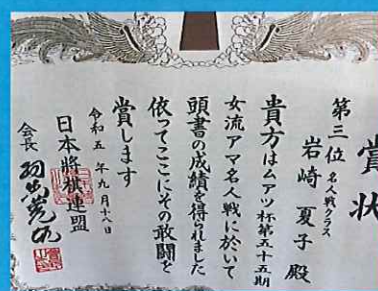 賞状
第三位 名人戦クラス
岩崎 夏子 殿
貴方はムアツ杯第五十五期
女流アマ名人戦に於いて
頭書の成績を得られました
依ってここにその敢闘を
賞します
令和五年九月十八日
日本將棋連盟
会長